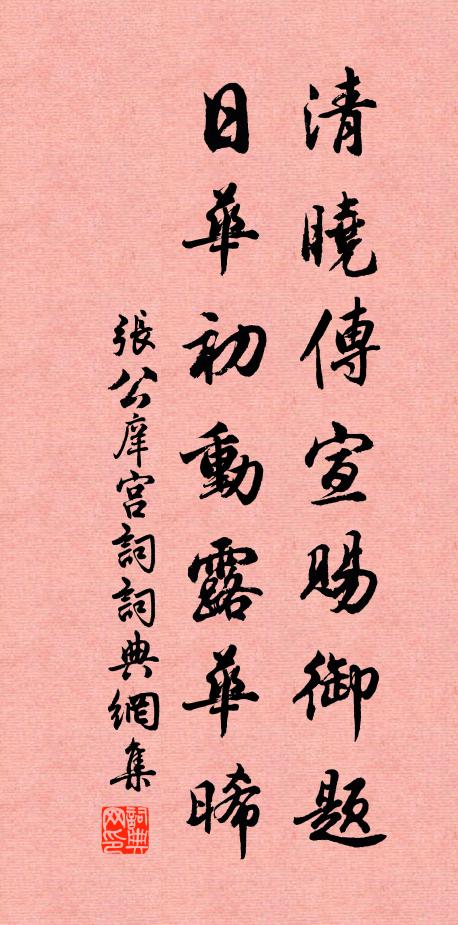 清曉傳宣賜御題
日華初動露華晞
張公庠宮詞詞典網集
詞典网印